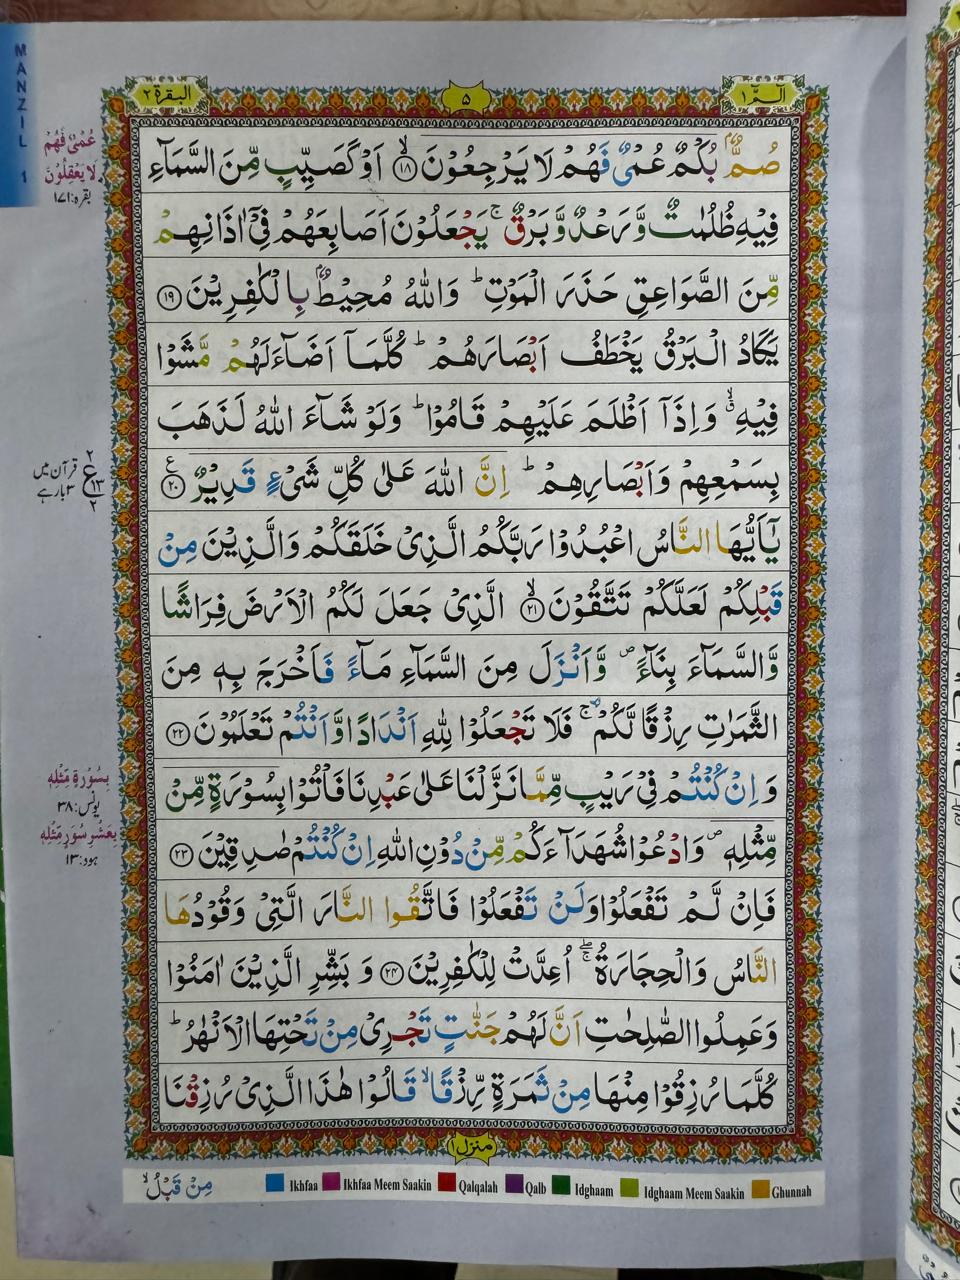 MANZIL 1
البقرة ٢
٥
الٓمّٓ ١
صُمٌّۢ بُكْمٌ عُمْىٌ فَهُمْ لَا يَرْجِعُوْنَ ۙ‏﴿۱۸﴾ اَوْ كَصَيِّبٍ مِّنَ السَّمَآءِ
فِيْهِ ظُلُمٰتٌ وَّرَعْدٌ وَّبَرْقٌ ۚ يَجْعَلُوْنَ اَصَابِعَهُمْ فِىْٓ اٰذَانِهِمْ
مِّنَ الصَّوَاعِقِ حَذَرَ الْمَوْتِ ؕ وَاللّٰهُ مُحِيْطٌۢ بِالْكٰفِرِيْنَ ﴿۱۹﴾
يَكَادُ الْبَرْقُ يَخْطَفُ اَبْصَارَهُمْ ؕ كُلَّمَآ اَضَآءَ لَهُمْ مَّشَوْا
فِيْهِ ۙۗ وَاِذَآ اَظْلَمَ عَلَيْهِمْ قَامُوْا ؕ وَلَوْ شَآءَ اللّٰهُ لَذَهَبَ
بِسَمْعِهِمْ وَاَبْصَارِهِمْ ؕ اِنَّ اللّٰهَ عَلٰى كُلِّ شَىْءٍ قَدِيْرٌ ﴿۲۰﴾ ع
يٰٓاَيُّهَا النَّاسُ اعْبُدُوْا رَبَّكُمُ الَّذِىْ خَلَقَكُمْ وَالَّذِيْنَ مِنْ
قَبْلِكُمْ لَعَلَّكُمْ تَتَّقُوْنَ ۙ‏﴿۲۱﴾ الَّذِىْ جَعَلَ لَكُمُ الْاَرْضَ فِرَاشًا
وَّالسَّمَآءَ بِنَآءً ص وَّاَنْزَلَ مِنَ السَّمَآءِ مَآءً فَاَخْرَجَ بِهٖ مِنَ
الثَّمَرٰتِ رِزْقًا لَّكُمْ ۚ فَلَا تَجْعَلُوْا لِلّٰهِ اَنْدَادًا وَّاَنْتُمْ تَعْلَمُوْنَ ﴿۲۲﴾
وَاِنْ كُنْتُمْ فِىْ رَيْبٍ مِّمَّا نَزَّلْنَا عَلٰى عَبْدِنَا فَاْتُوْا بِسُوْرَةٍ مِّنْ
مِّثْلِهٖ ص وَادْعُوْا شُهَدَآءَكُمْ مِّنْ دُوْنِ اللّٰهِ اِنْ كُنْتُمْ صٰدِقِيْنَ ﴿۲۳﴾
فَاِنْ لَّمْ تَفْعَلُوْا وَلَنْ تَفْعَلُوْا فَاتَّقُوا النَّارَ الَّتِىْ وَقُوْدُهَا
النَّاسُ وَالْحِجَارَةُ ۚۖ اُعِدَّتْ لِلْكٰفِرِيْنَ ﴿۲۴﴾ وَبَشِّرِ الَّذِيْنَ اٰمَنُوْا
وَعَمِلُوا الصّٰلِحٰتِ اَنَّ لَهُمْ جَنّٰتٍ تَجْرِىْ مِنْ تَحْتِهَا الْاَنْهٰرُ ؕ
كُلَّمَا رُزِقُوْا مِنْهَا مِنْ ثَمَرَةٍ رِّزْقًا ۙ قَالُوْا هٰذَا الَّذِىْ رُزِقْنَا
عُمْىٌ فَهُمْ
لَا يَعْقِلُوْنَ
بقرہ: ۱۷۱
قرآن میں
۳ بار ہے
۲
ع
۱۳
۲
بِسُوْرَةٍ مِّثْلِهٖ
یونس: ۳۸
بِعَشْرِ سُوَرٍ مِّثْلِهٖ
ہود: ۱۳
منزل ۱
مِنْ قَبْلُ ۙ
Ikhfaa Ikhfaa Meem Saakin Qalqalah Qalb Idghaam Idghaam Meem Saakin Ghunnah